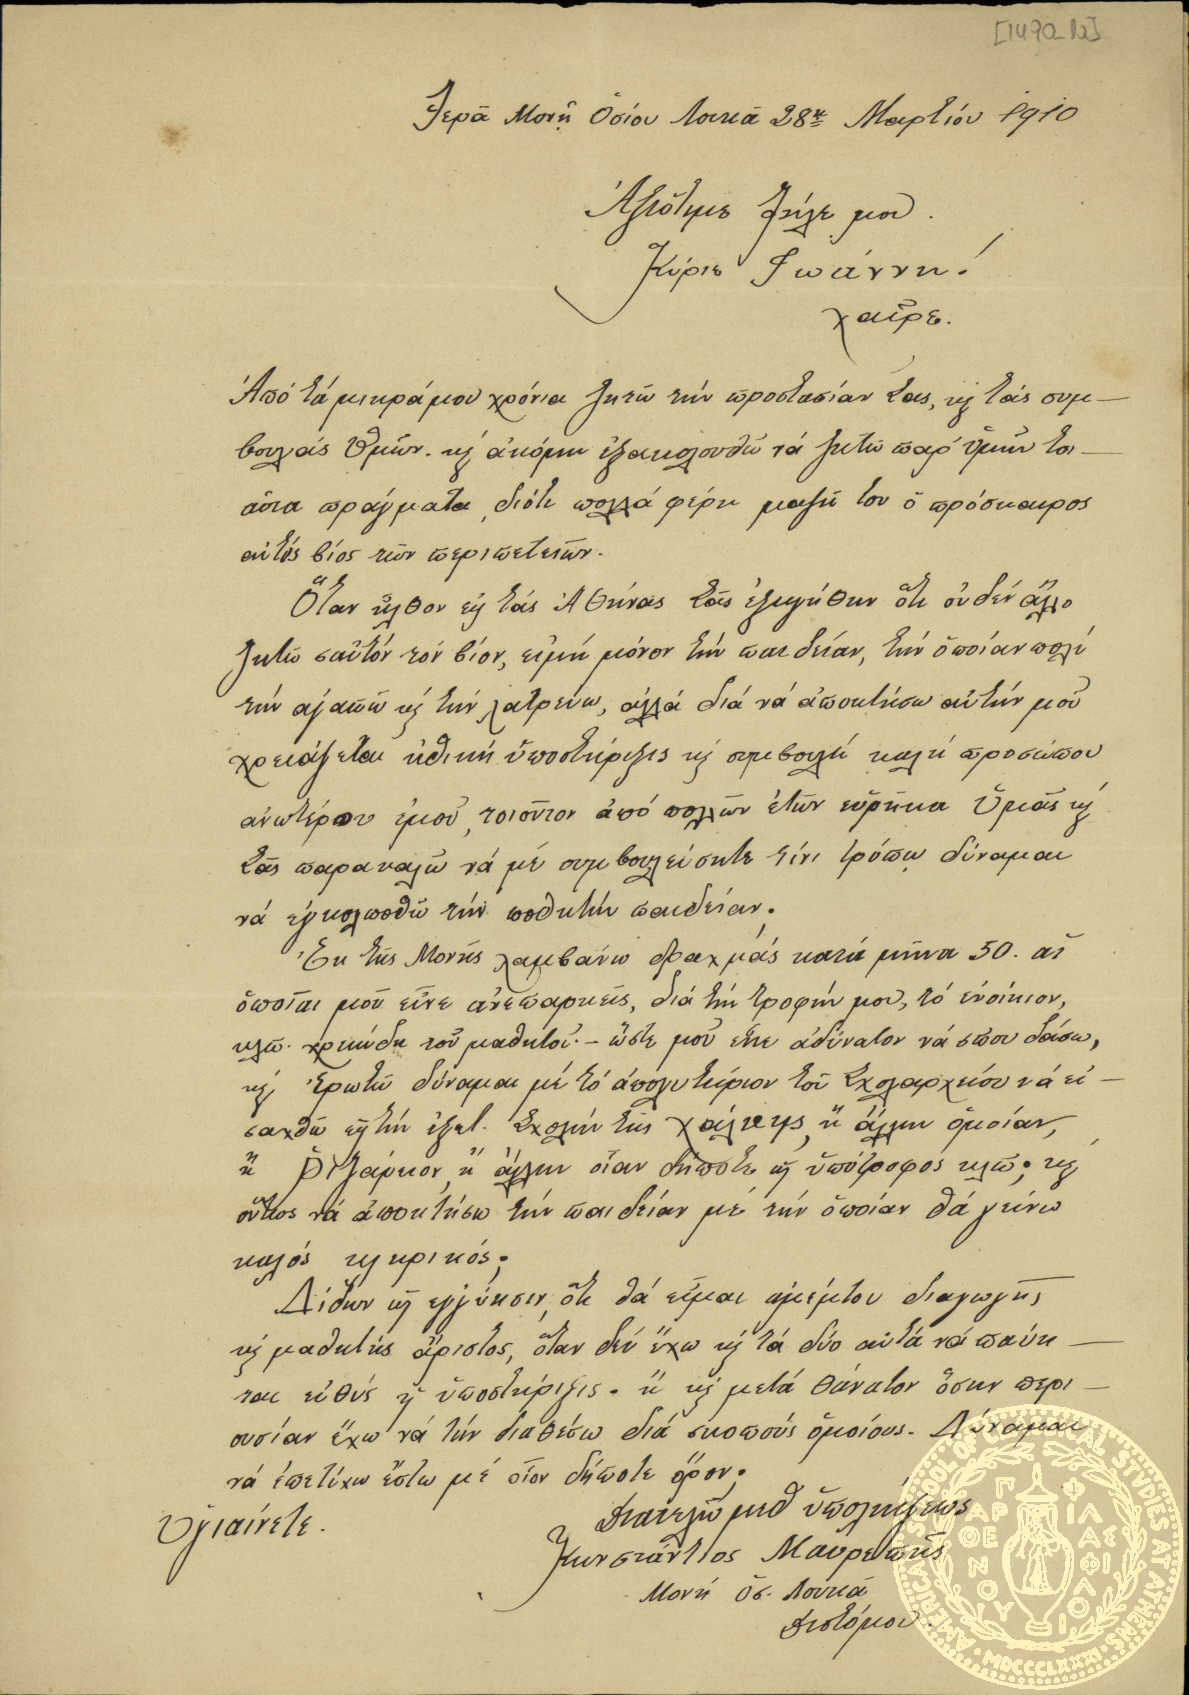 [1490_12]
Ἱερᾶ Μονῇ Ὁσίου Λουκᾶ 28ῃ Μαρτίου 1910
Ἀξιότιμε Φίλε μου.
Κύριε Ἰωάννη!
χαῖρε.
Ἀπό τά μικρά μου χρόνια ζητῶ τήν προστασίαν Σας, κ̀ τάς συμ—
βουλάς Ὑμῶν. κ̀ ἀκόμη ἐξακολουθῶ νά ζητῶ παρ' ὑμῶν τοι—
αῦτα πράγματα, διότι πολλά φέρη μαζῆ του ὁ πρόσκαιρος
αὐτός βίος τῶν περιπετειῶν.
Ὅταν ἦλθον εἰς τάς Ἀθήνας Σᾶς ἐξηγήθην ὅτι οὐδέν ἄλλο
ζητῶ σαὐτόν τόν βίον, εἰμή μόνον τήν παιδείαν, τήν ὁποίαν πολύ
τήν ἀγαπῶ κ̀ τήν λατρεύω, ἀλλά διά νά ἀποκτήσω αὐτήν μοῦ
χρειάζεται ἠθική ὑποστήριξις κ̀ συμβουλή καλή προσώπου
ἀνωτέρου ἐμοῦ, τοιοῦτον ἀπό πολλῶν ἐτῶν εὕρηκα Ὑμᾶς κ̀
Σᾶς παρακαλῶ νά μέ συμβουλεύσητε τίνι τρόπῳ δύναμαι
νά ἐγκολποθῶ τήν ποθητήν παιδείαν.
Ἐκ τῆς Μονῆς λαμβάνω δραχμάς κατά μῆνα 50. αἱ
ὁποῖαι μοῦ εἶνε ἀνεπαρκεῖς, διά τήν τροφήν μου, τό ἐνοίκιον,
κλπ. χρειώδη τοῦ μαθητοῦ.— ὥστε μοῦ εἶνε ἀδύνατον νά σπουδάσω,
κ̀ Ἐρωτῶ δύναμαι μέ τό ἀπολυτήριον τοῦ Σχολαρχείου νά εἰ—
σαχθῶ εἰς τήν ἐξωτ. Σχολήν τῆς Χάλκης, ἤ ἄλλην ὁμοίαν,
ἤ Ῥιζάρειον, ἤ ἄλλην οἵαν δήποτε ὡς ὑπότροφος κλπ; κ̀
οὕτως νά ἀποκτήσω τήν παιδείαν μέ τήν ὁποίαν θά γείνω
καλός κληρικός;
Δίδων ὡς ἐγγύησιν, ὅτι θά εἶμαι ἀμέμπτου διαγωγῆς
κ̀ μαθητής ἄριστος, ὅταν δέν ἔχω κ̀ τά δύο αὐτά νά παύη—
ται εὐθύς ἡ ὑποστήριξις. ἤ κ̀ μετά θάνατον ὅσην περι—
ουσίαν ἔχω νά τήν διαθέσω διά σκοπούς ὁμοίους. Δύναμαι
νά ἐπετύχω ἔστω μέ οἷον δήποτε ὅρον;
Διατελῶ μεθ ὑπολήψεως
Ὑγιαίνετε.
Κωνστάντιος Μαυρεπῆς
Μονή Ὁσ. Λουκᾶ
Διστόμου.
AMERICAN SCHOOL OF CLASSICAL STUDIES AT ATHENS
MDCCCLXXXI
ΠΑΡΘΕΝΟΥ ΦΙΛΑΣ ΦΙΛΟΙ